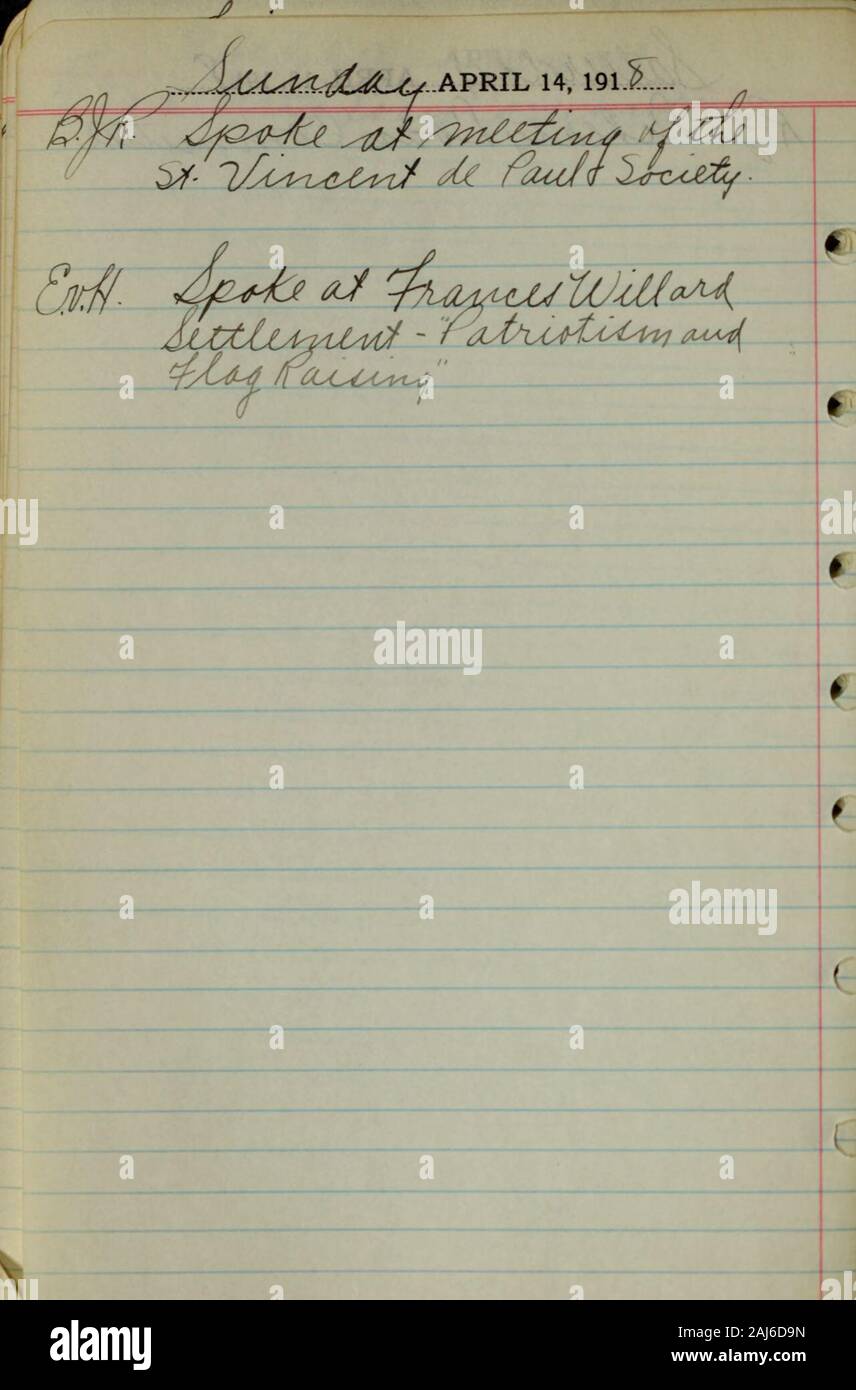 Sunday APRIL 14, 1918
B.J.R. Spoke at meeting of the
St. Vincent de Paul Society.
E.v.H. Spoke at Frances Willard
Settlement - "Patriotism and
Flag Raising"
alamy
a
alamy
Image ID: 2AJ6D9N
www.alamy.com